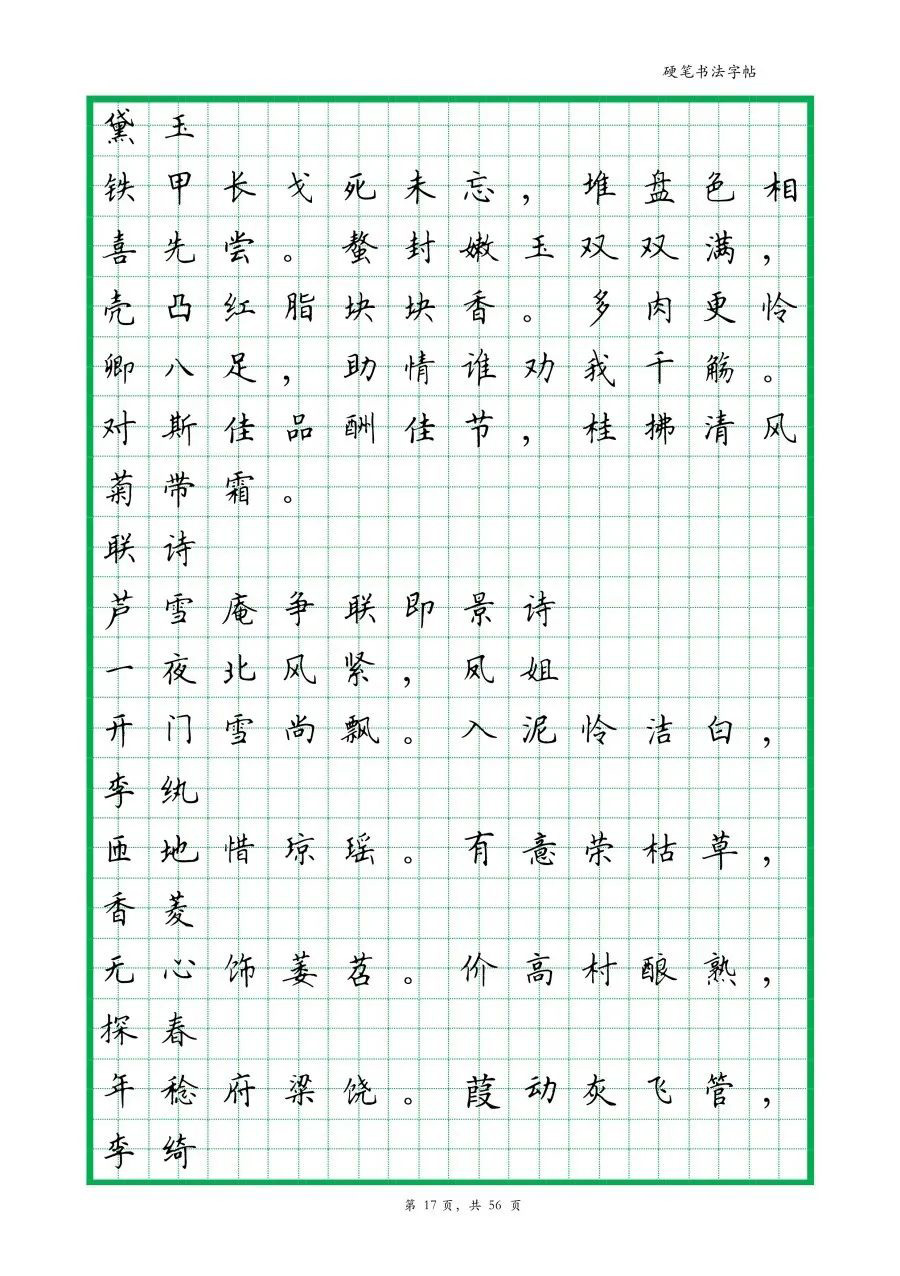 硬笔书法字帖
黛玉
铁甲长戈死未忘，堆盘色相
喜先尝。螯封嫩玉双双满，
壳凸红脂块块香。多肉更怜
卿八足，助情谁劝我千觞。
对斯佳品酬佳节，桂拂清风
菊带霜。
联诗
芦雪庵争联即景诗
一夜北风紧，凤姐
开门雪尚飘。入泥怜洁白，
李纨
匝地惜琼瑶。有意荣枯草，
香菱
无心饰萎苕。价高村酿熟，
探春
年稔府粱饶。葭动灰飞管，
李绮
第 17 页，共 56 页